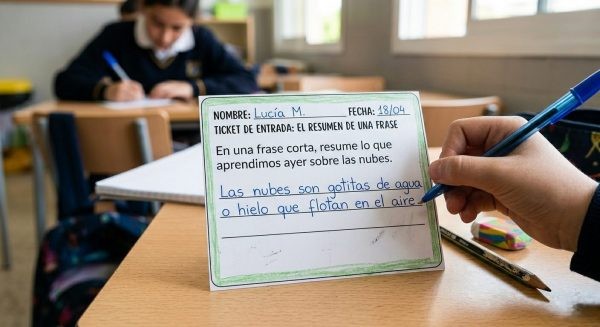 NOMBRE: Lucía M. FECHA: 18/04
TICKET DE ENTRADA: EL RESUMEN DE UNA FRASE
En una frase corta, resume lo que
aprendimos ayer sobre las nubes.
Las nubes son gotitas de agua
o hielo que flotan en el aire.